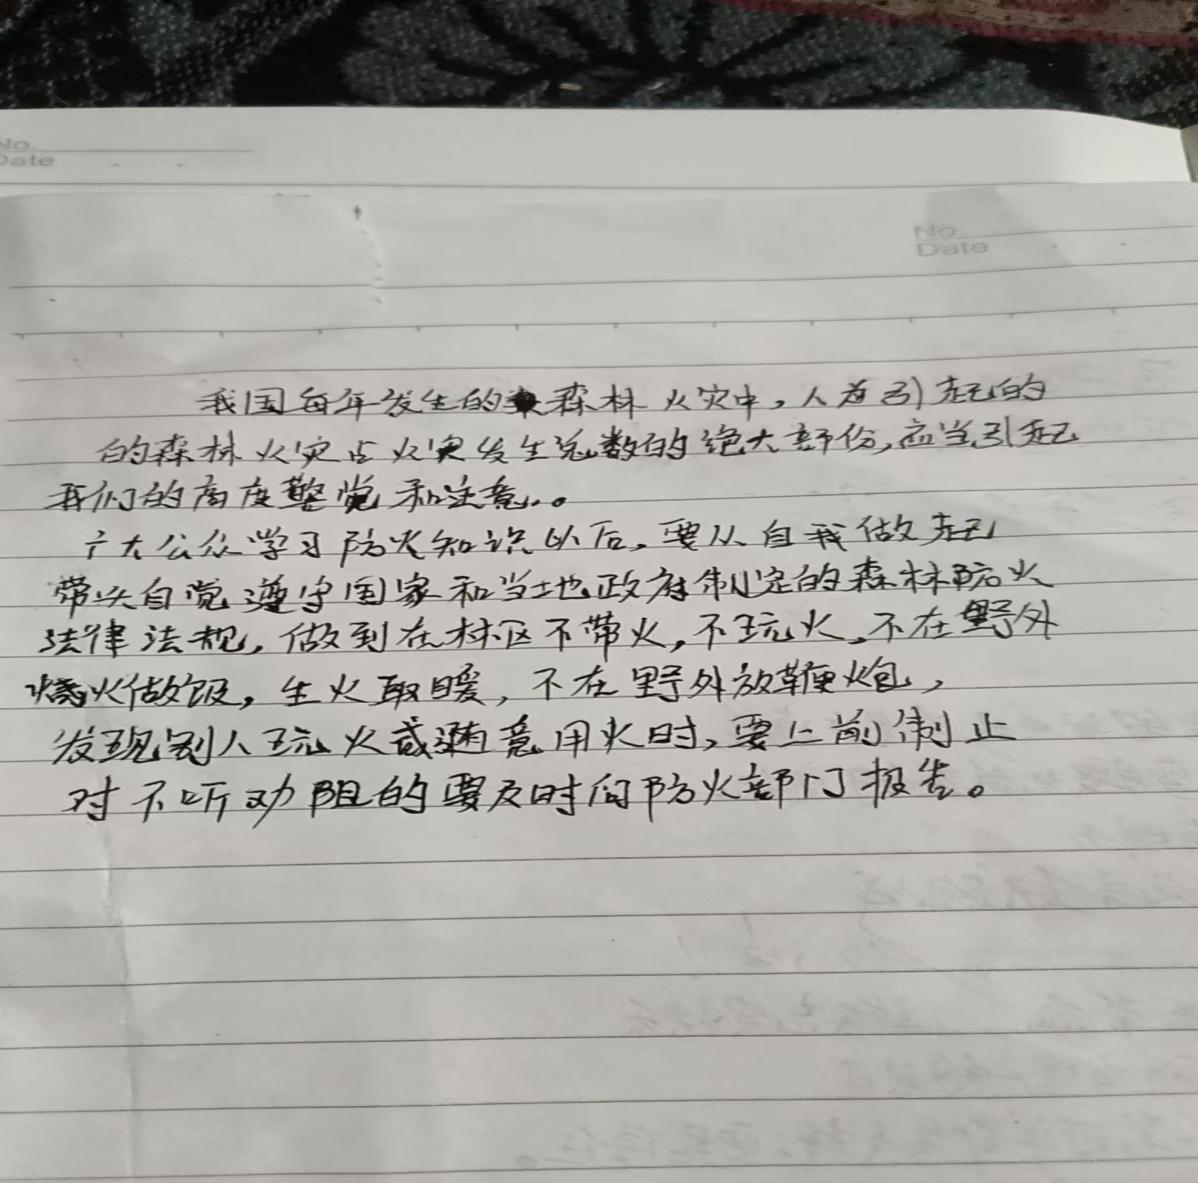 No.
Date
No.
Date
我国每年发生的森林火灾中，人为引起的
的森林火灾占火灾发生总数的绝大部份，应当引起
我们的高度警觉和注意。
广大公众学习防火知识以后，要从自我做起
带头自觉遵守国家和当地政府制定的森林防火
法律法规，做到在林区不带火，不玩火，不在野外
烧火做饭，生火取暖，不在野外放鞭炮，
发现别人玩火或随意用火时，要上前制止
对不听劝阻的要及时向防火部门报告。